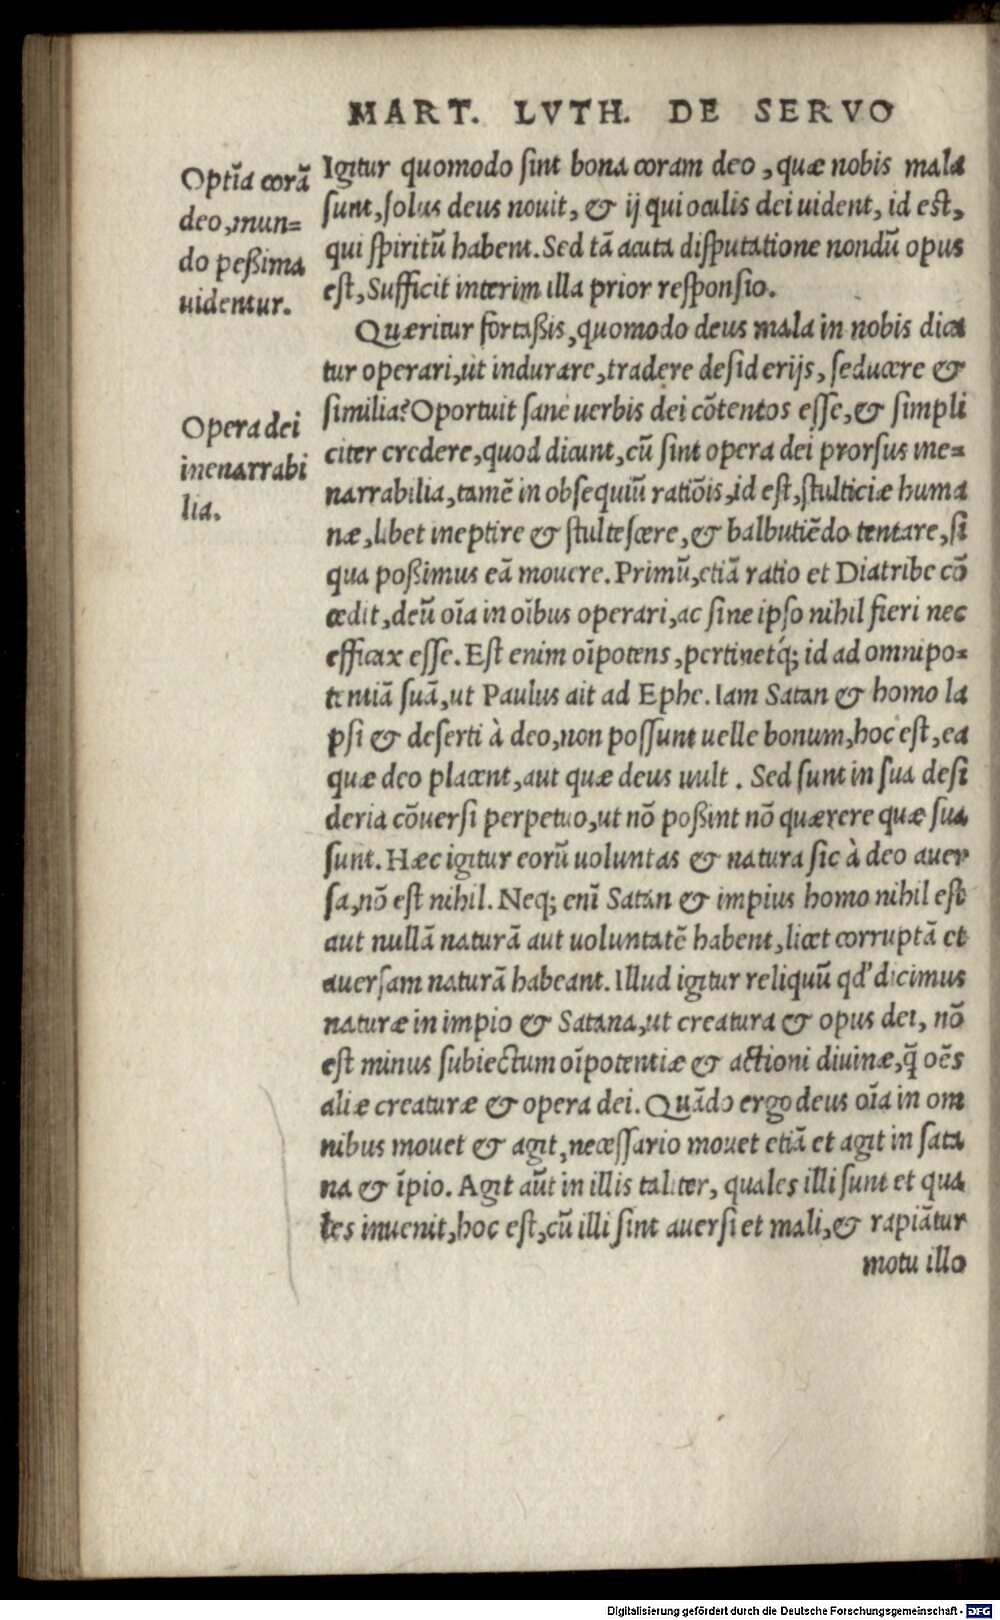 MART. LVTH. DE SERVO
Optīa corā
deo, mun=
do peßima
uidentur.
Igitur quomodo ſint bona coram deo, quæ nobis mala
ſunt, ſolus deus nouit, & ij qui oculis dei uident, id eſt,
qui ſpiritū habent. Sed tā acuta diſputatione nondū opus
eſt, Sufficit interim illa prior reſponſio.
Quæritur fortaßis, quomodo deus mala in nobis dica
tur operari, ut indurare, tradere deſiderijs, ſeducere &
Opera dei
inenarrabi
lia.
ſimilia? Oportuit ſane uerbis dei cōtentos eſſe, & ſimpli
citer credere, quod dicunt, cū ſint opera dei prorſus ine=
narrabilia, tamē in obſequiū ratiōis, id eſt, ſtulticiæ huma
næ, libet ineptire & ſtulteſcere, & balbutiēdo tentare, ſi
qua poßimus eā mouere. Primū, etiā ratio et Diatribe cō
cedit, deū oīa in oībus operari, ac ſine ipſo nihil fieri nec
efficax eſſe. Eſt enim oīpotens, pertinetq́; id ad omnipo=
tentiā ſuā, ut Paulus ait ad Ephe. Iam Satan & homo la
pſi & deſerti à deo, non poſſunt uelle bonum, hoc eſt, ea
quæ deo placent, aut quæ deus uult. Sed ſunt in ſua deſi
deria cōuerſi perpetuo, ut nō poßint nō quærere quæ ſua
ſunt. Hæc igitur eorū uoluntas & natura ſic à deo auer
ſa, nō eſt nihil. Neq; enī Satan & impius homo nihil eſt
aut nullā naturā aut uoluntatē habent, licet corruptā et
auerſam naturā habeant. Illud igitur reliquū qd' dicimus
naturæ in impio & Satana, ut creatura & opus dei, nō
eſt minus ſubiectum oīpotentiæ & actioni diuinæ, q̄ oēs
aliæ creaturæ & opera dei. Quādo ergo deus oīa in om
nibus mouet & agit, neceſſario mouet etiā et agit in ſata
na & īpio. Agit aūt in illis taliter, quales illi ſunt et qua
les inuenit, hoc eſt, cū illi ſint auerſi et mali, & rapiātur
motu illo
Digitalisierung gefördert durch die Deutsche Forschungsgemeinschaft - DFG